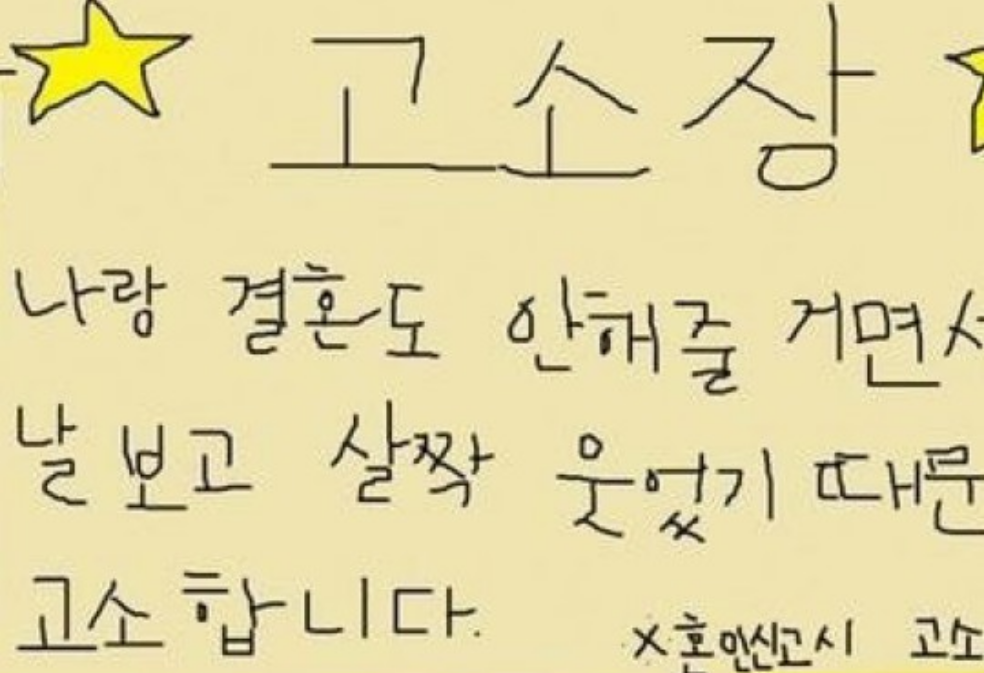 고소장
나랑 결혼도 안해줄 거면서
날 보고 살짝 웃었기 때문
고소합니다.
※혼인신고시 고소